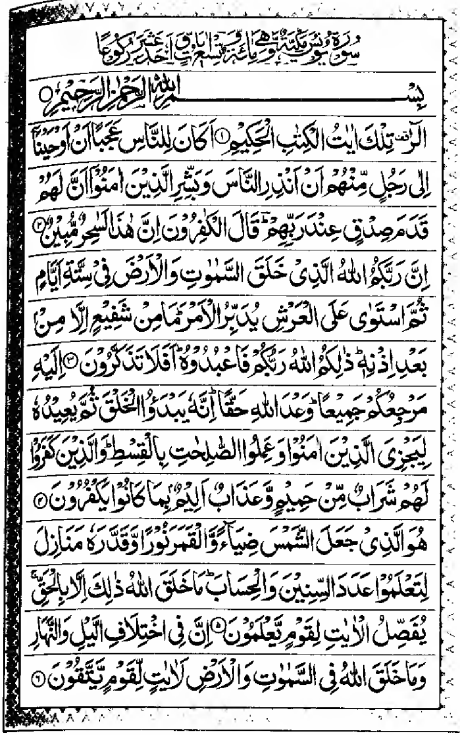 سورة يونس مكية وهي مائة وتسع ايات واحد عشر ركوعا
بِسْمِ اللهِ الرَّحْمٰنِ الرَّحِيْمِ ۝
الٓرٰ تِلْكَ اٰيٰتُ الْكِتٰبِ الْحَكِيْمِ ۝١ اَكَانَ لِلنَّاسِ عَجَبًا اَنْ اَوْحَيْنَآ
اِلٰى رَجُلٍ مِّنْهُمْ اَنْ اَنْذِرِ النَّاسَ وَبَشِّرِ الَّذِيْنَ اٰمَنُوْٓا اَنَّ لَهُمْ
قَدَمَ صِدْقٍ عِنْدَ رَبِّهِمْ ؕ قَالَ الْكٰفِرُوْنَ اِنَّ هٰذَا لَسٰحِرٌ مُّبِيْنٌ ۝٢
اِنَّ رَبَّكُمُ اللهُ الَّذِيْ خَلَقَ السَّمٰوٰتِ وَالْاَرْضَ فِيْ سِتَّةِ اَيَّامٍ
ثُمَّ اسْتَوٰى عَلَى الْعَرْشِ يُدَبِّرُ الْاَمْرَ ؕ مَا مِنْ شَفِيْعٍ اِلَّا مِنْۢ
بَعْدِ اِذْنِهٖ ؕ ذٰلِكُمُ اللهُ رَبُّكُمْ فَاعْبُدُوْهُ ؕ اَفَلَا تَذَكَّرُوْنَ ۝٣ اِلَيْهِ
مَرْجِعُكُمْ جَمِيْعًا ؕ وَعْدَ اللهِ حَقًّا ؕ اِنَّهٗ يَبْدَؤُا الْخَلْقَ ثُمَّ يُعِيْدُهٗ
لِيَجْزِيَ الَّذِيْنَ اٰمَنُوْا وَعَمِلُوا الصّٰلِحٰتِ بِالْقِسْطِ ؕ وَالَّذِيْنَ كَفَرُوْا
لَهُمْ شَرَابٌ مِّنْ حَمِيْمٍ وَّعَذَابٌ اَلِيْمٌۢ بِمَا كَانُوْا يَكْفُرُوْنَ ۝٤
هُوَ الَّذِيْ جَعَلَ الشَّمْسَ ضِيَآءً وَّالْقَمَرَ نُوْرًا وَّقَدَّرَهٗ مَنَازِلَ
لِتَعْلَمُوْا عَدَدَ السِّنِيْنَ وَالْحِسَابَ ؕ مَا خَلَقَ اللهُ ذٰلِكَ اِلَّا بِالْحَقِّ ۚ
يُفَصِّلُ الْاٰيٰتِ لِقَوْمٍ يَّعْلَمُوْنَ ۝٥ اِنَّ فِي اخْتِلَافِ الَّيْلِ وَالنَّهَارِ
وَمَا خَلَقَ اللهُ فِي السَّمٰوٰتِ وَالْاَرْضِ لَاٰيٰتٍ لِّقَوْمٍ يَّتَّقُوْنَ ۝٦